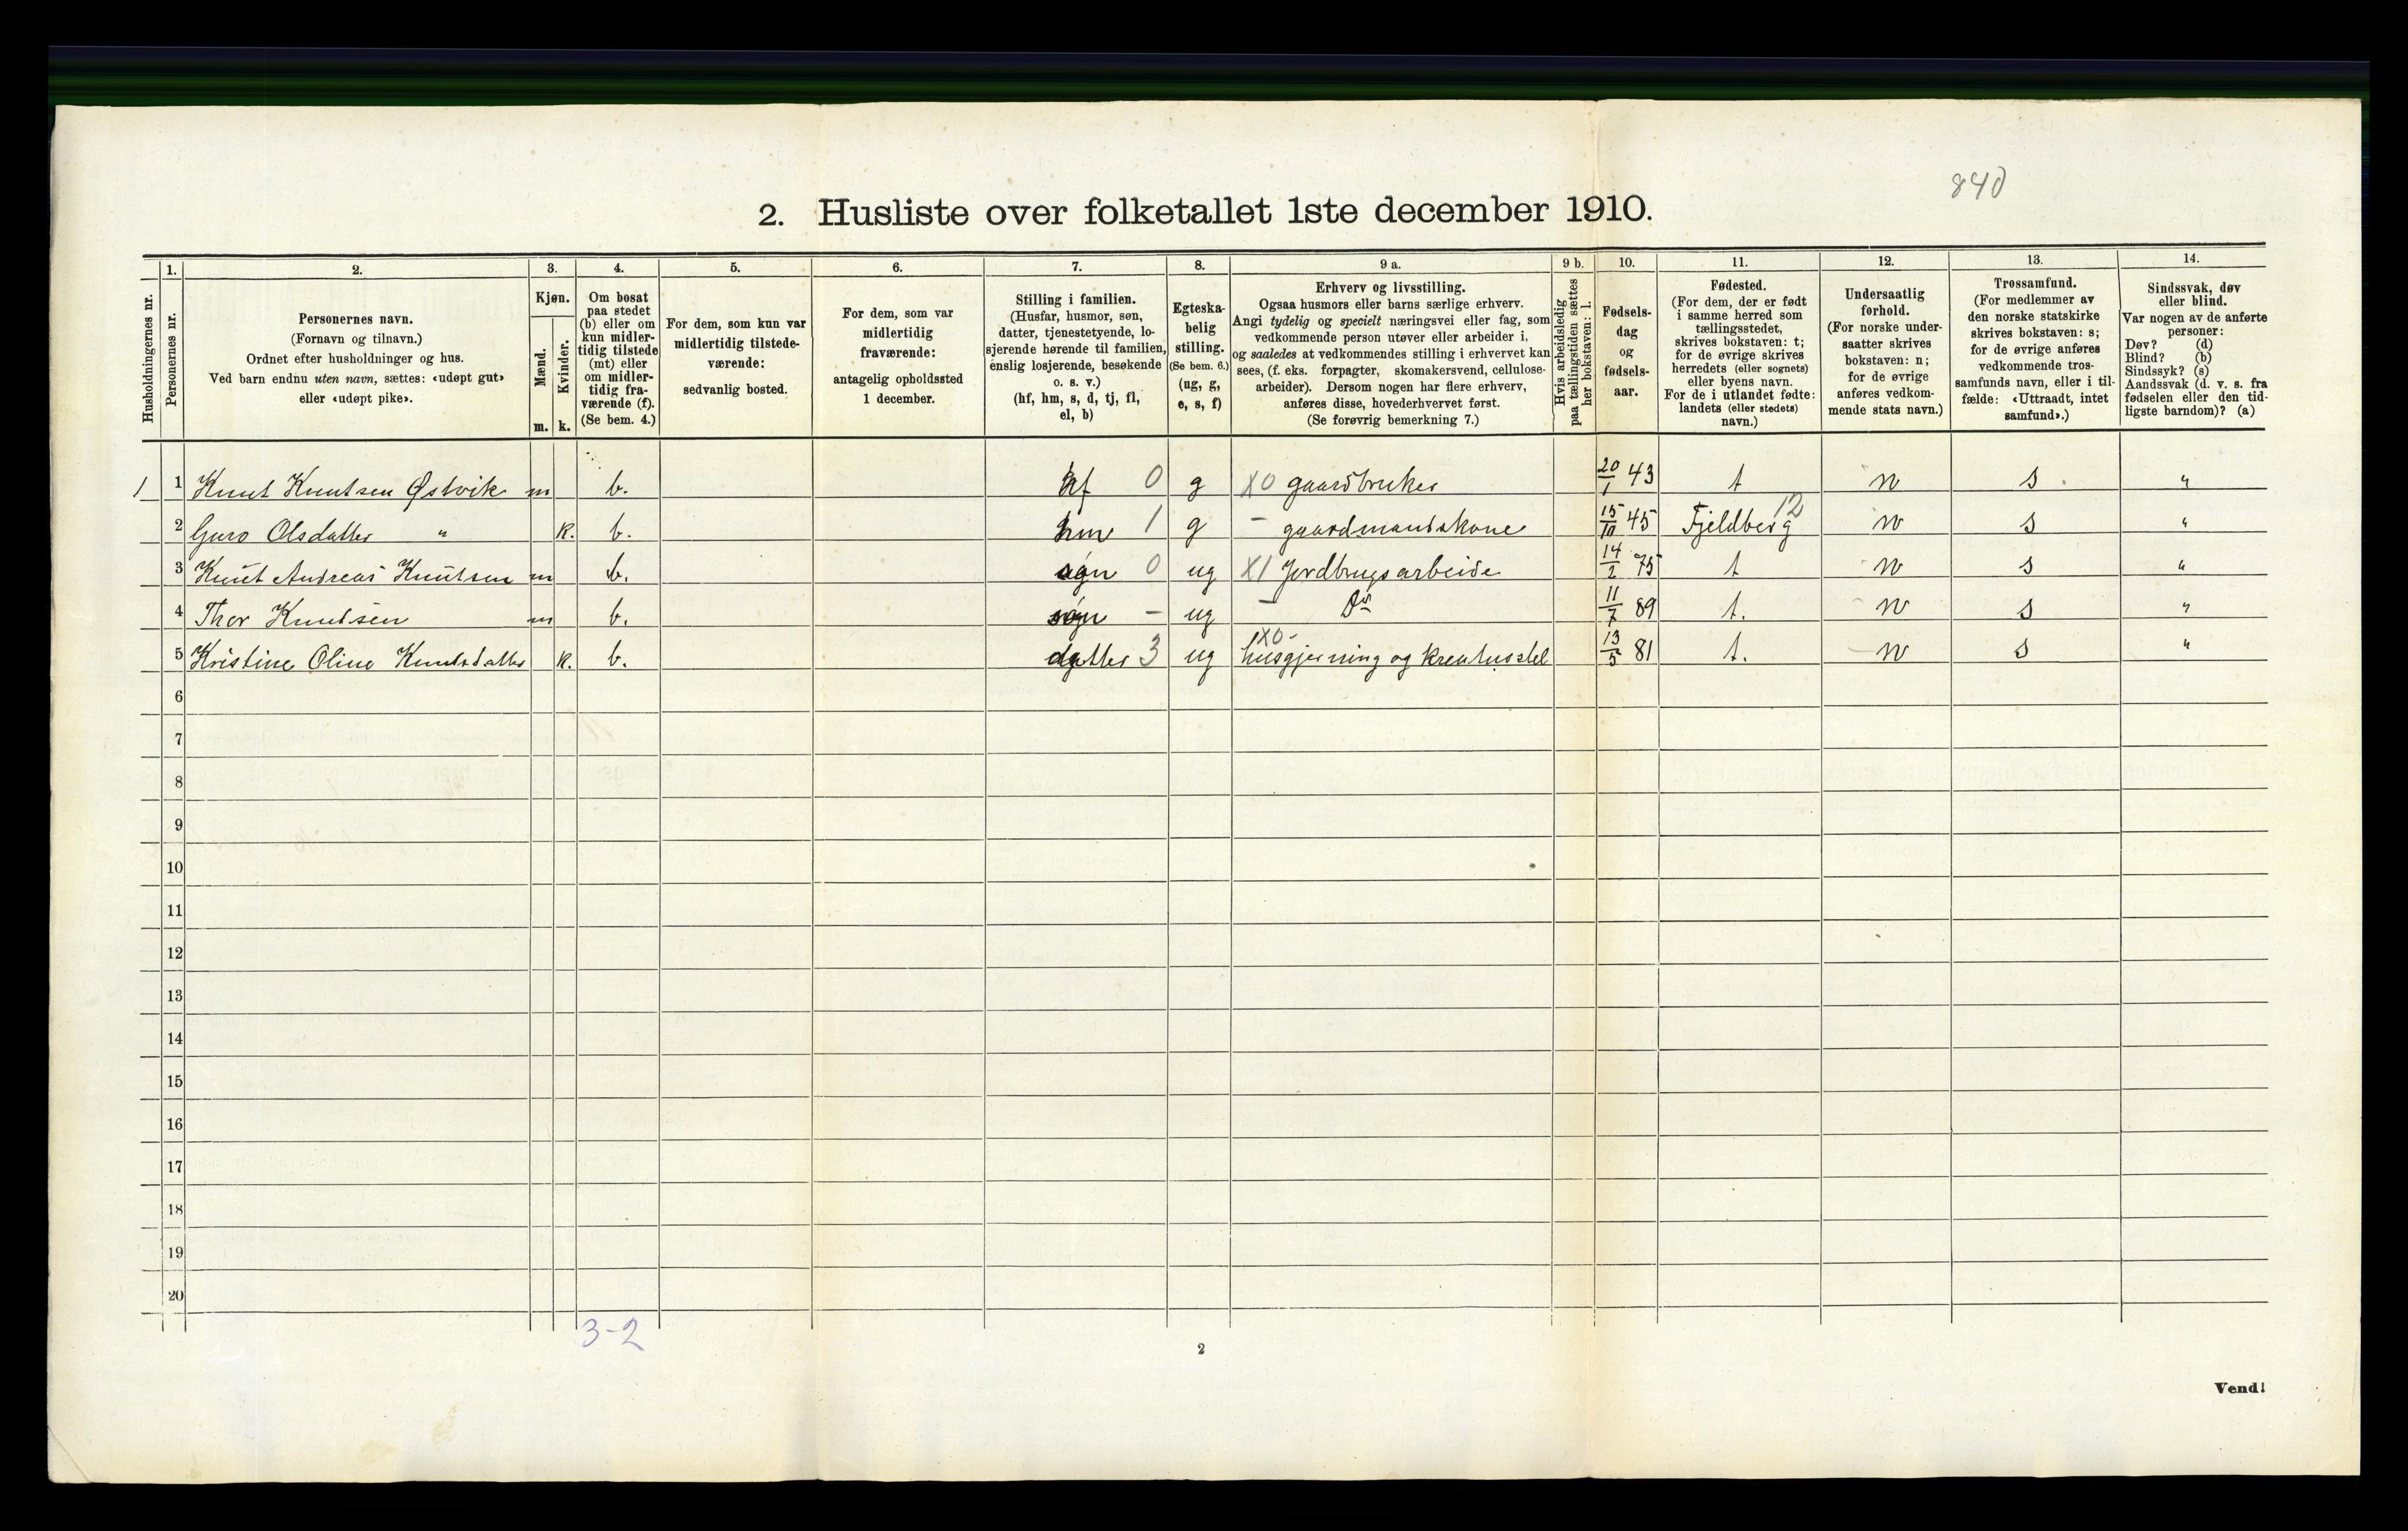 840
2. Husliste over folketallet 1ste december 1910.
Husholdningernes nr.
1.
Personernes nr.
2.
Personernes navn.
(Fornavn og tilnavn.)
Ordnet efter husholdninger og hus.
Ved barn endnu uten navn, sættes: «udøpt gut»
eller «udøpt pike».
3.
Kjøn.
Mænd.
Kvinder.
m. k.
4.
Om bosat
paa stedet
(b) eller om
kun midler-
tidig tilstede
(mt) eller
om midler-
tidig fra-
værende (f).
(Se bem. 4.)
5.
For dem, som kun var
midlertidig tilstede-
værende:
sedvanlig bosted.
6.
For dem, som var
midlertidig
fraværende:
antagelig opholdssted
1 december.
7.
Stilling i familien.
(Husfar, husmor, søn,
datter, tjenestetyende, lo-
sjerende hørende til familien,
enslig losjerende, besøkende
o. s. v.)
(hf, hm, s, d, tj, fl,
el, b)
8.
Egteska-
belig
stilling.
(Se bem. 6.)
(ug, g,
e, s, f)
9 a.
Erhverv og livsstilling.
Ogsaa husmors eller barns særlige erhverv.
Angi tydelig og specielt næringsvei eller fag, som
vedkommende person utøver eller arbeider i,
og saaledes at vedkommendes stilling i erhvervet kan
sees, (f. eks. forpagter, skomakersvend, cellulose-
arbeider). Dersom nogen har flere erhverv,
anføres disse, hovederhvervet først.
(Se forøvrig bemerkning 7.)
9 b.
Hvis arbeidsledig
paa tællingstiden sættes
her bokstaven: l.
10.
Fødsels-
dag
og
fødsels-
aar.
11.
Fødested.
(For dem, der er født
i samme herred som
tællingsstedet,
skrives bokstaven: t;
for de øvrige skrives
herredets (eller sognets)
eller byens navn.
For de i utlandet fødte:
landets (eller stedets)
navn.)
12.
Undersaatlig
forhold.
(For norske under-
saatter skrives
bokstaven: n;
for de øvrige
anføres vedkom-
mende stats navn.)
13.
Trossamfund.
(For medlemmer av
den norske statskirke
skrives bokstaven: s;
for de øvrige anføres
vedkommende tros-
samfunds navn, eller i til-
fælde: «Uttraadt, intet
samfund».)
14.
Sindssvak, døv
eller blind.
Var nogen av de anførte
personer:
Døv? (d)
Blind? (b)
Sindssyk? (s)
Aandssvak (d. v. s. fra
fødselen eller den tid-
ligste barndom)? (a)
1 1 Knut Knutsen Østvik m b. hf 0 g X0 gaardbruker 20/1 43 t n s "
2 Guro Olsdatter " k. b. hm 1 g - gaardmandskone 15/10 45 Fjeldberg 12 n s "
3 Knut Andreas Knutsen m b. søn 0 ug X1 Jordbrugsarbeide 14/2 75 t n s "
4 Thor Knudsen m b. søn - ug - Do 11/7 89 t. n s "
5 Kristine Oline Knutsdatter k. b. datter 3 ug 1X0- husgjerning og kreaturstel 13/5 81 t. n s "
6
7
8
9
10
11
12
13
14
15
16
17
18
19
20
3-2
2
Vend!